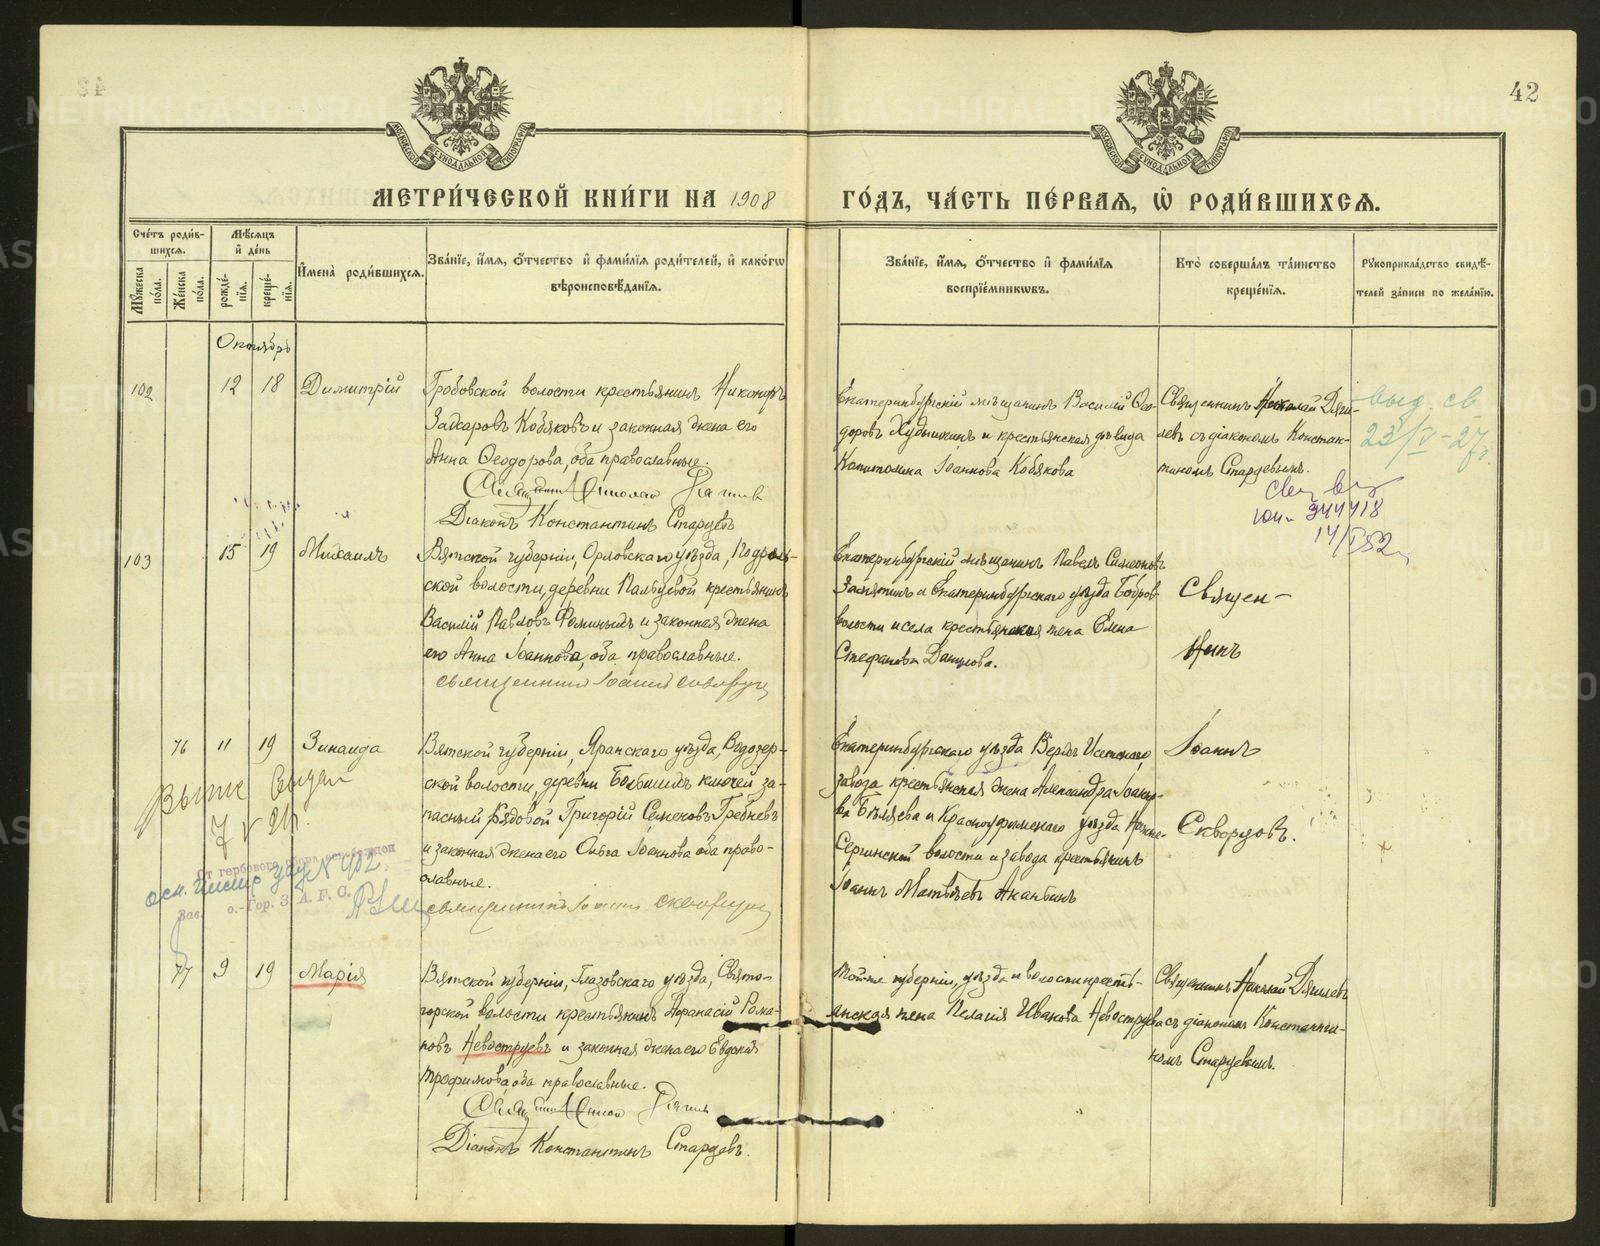 42
МЕТРИ́ЧЕСКОЙ КНИ́ГИ НА 1908
ГО́ДЪ, ЧА́СТЬ ПЕ́РВАѦ, Ѡ РОДИ́ВШИХСѦ.
Сче́тъ роди́в-
шихсѧ.
Мѣ́сѧцъ
и҆ де́нь
Мꙋ́жеска по́ла.
Же́нска по́ла.
рожде́-нїѧ.
креще́-нїѧ.
И҆мена̀ роди́вшихсѧ.
Зва́нїе, и҆́мѧ, о҆́тчество и҆ фами́лїѧ роди́телей, и҆ како́гѡ
вѣроисповѣ́данїѧ.
Зва́нїе, и҆́мѧ, о҆́тчество и҆ фами́лїѧ
воспрїе́мникѡвъ.
Кто̀ соверша́лъ та́инство
креще́нїѧ.
Рꙋкоприкла́дство свидѣ́-
телей за́писи по жела́нїю.
Октябрь
102 12 18 Димитрій
Гробовской волости крестьянинъ Никоноръ
Захаровъ Кобяковъ и законная жена его
Анна Ѳеодорова, оба православные.
Діаконъ Константинъ Старцевъ
Екатеринбургскій мѣщанинъ Василій Ѳео-
доровъ Худышкинъ и крестьянская дѣвица
Капитолина Іоаннова Кобякова
Священникъ Николай Дяги-
левъ съ діакономъ Констан-
тиномъ Старцевымъ.
выд. св
23/V-27г.
344418
103 15 19 Михаилъ
Вятской губерніи, Орловскаго уѣзда, Подрель-
ской волости, деревни Пальцевой крестьянинъ
Василій Павловъ Ѳоминыхъ и законная жена
его Анна Іоаннова, оба православные.
священникъ Іоаннъ Скворцовъ
Екатеринбургскій мѣщанинъ Павелъ Симеоновъ
Замятинъ и Екатеринбургскаго уѣзда Бобров
волости и села крестьянская жена Елена
Стефанова Данилова.
Священ-
никъ
76 11 19 Зинаида
Вятской губерніи, Яранскаго уѣзда, Водозер-
ской волости, деревни Большихъ ключей за-
пасный рядовой Григорій Семеновъ Гребневъ
и законная жена его Ольга Іоаннова оба право-
славные.
священникъ Іоаннъ Скворцовъ
Екатеринбургскаго уѣзда Верхъ Исетскаго
завода крестьянская жена Александра Іоанно-
ва Бѣляева и Красноуфимскаго уѣзда Нижне-
Сергинской волости и завода крестьянинъ
Іоаннъ Матвѣевъ Ананьинъ
Іоаннъ
Скворцовъ.
От гербового сбора освобожден
Зав. о.-Гор. З. А. Г. С.
77 9 19 Марія
Вятской губерніи, Глазовскаго уѣзда, Свято-
горской волости крестьянинъ Аѳанасій Рома-
новъ Невоструевъ и законная жена его Евдокія
Трофимова, оба православные.
Діаконъ Константинъ Старцевъ.
Той-же губерніи, уѣзда и волости кресть-
янская жена Пелагія Иванова Невоструева
Священникъ Николай Дягилевъ
съ діакономъ Константи-
номъ Старцевымъ.